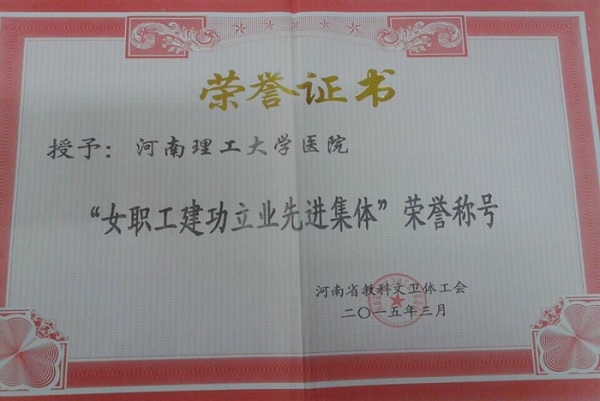 荣誉证书
授予：河南理工大学医院
“女职工建功立业先进集体”荣誉称号
河南省教科文卫体工会
二〇一五年三月